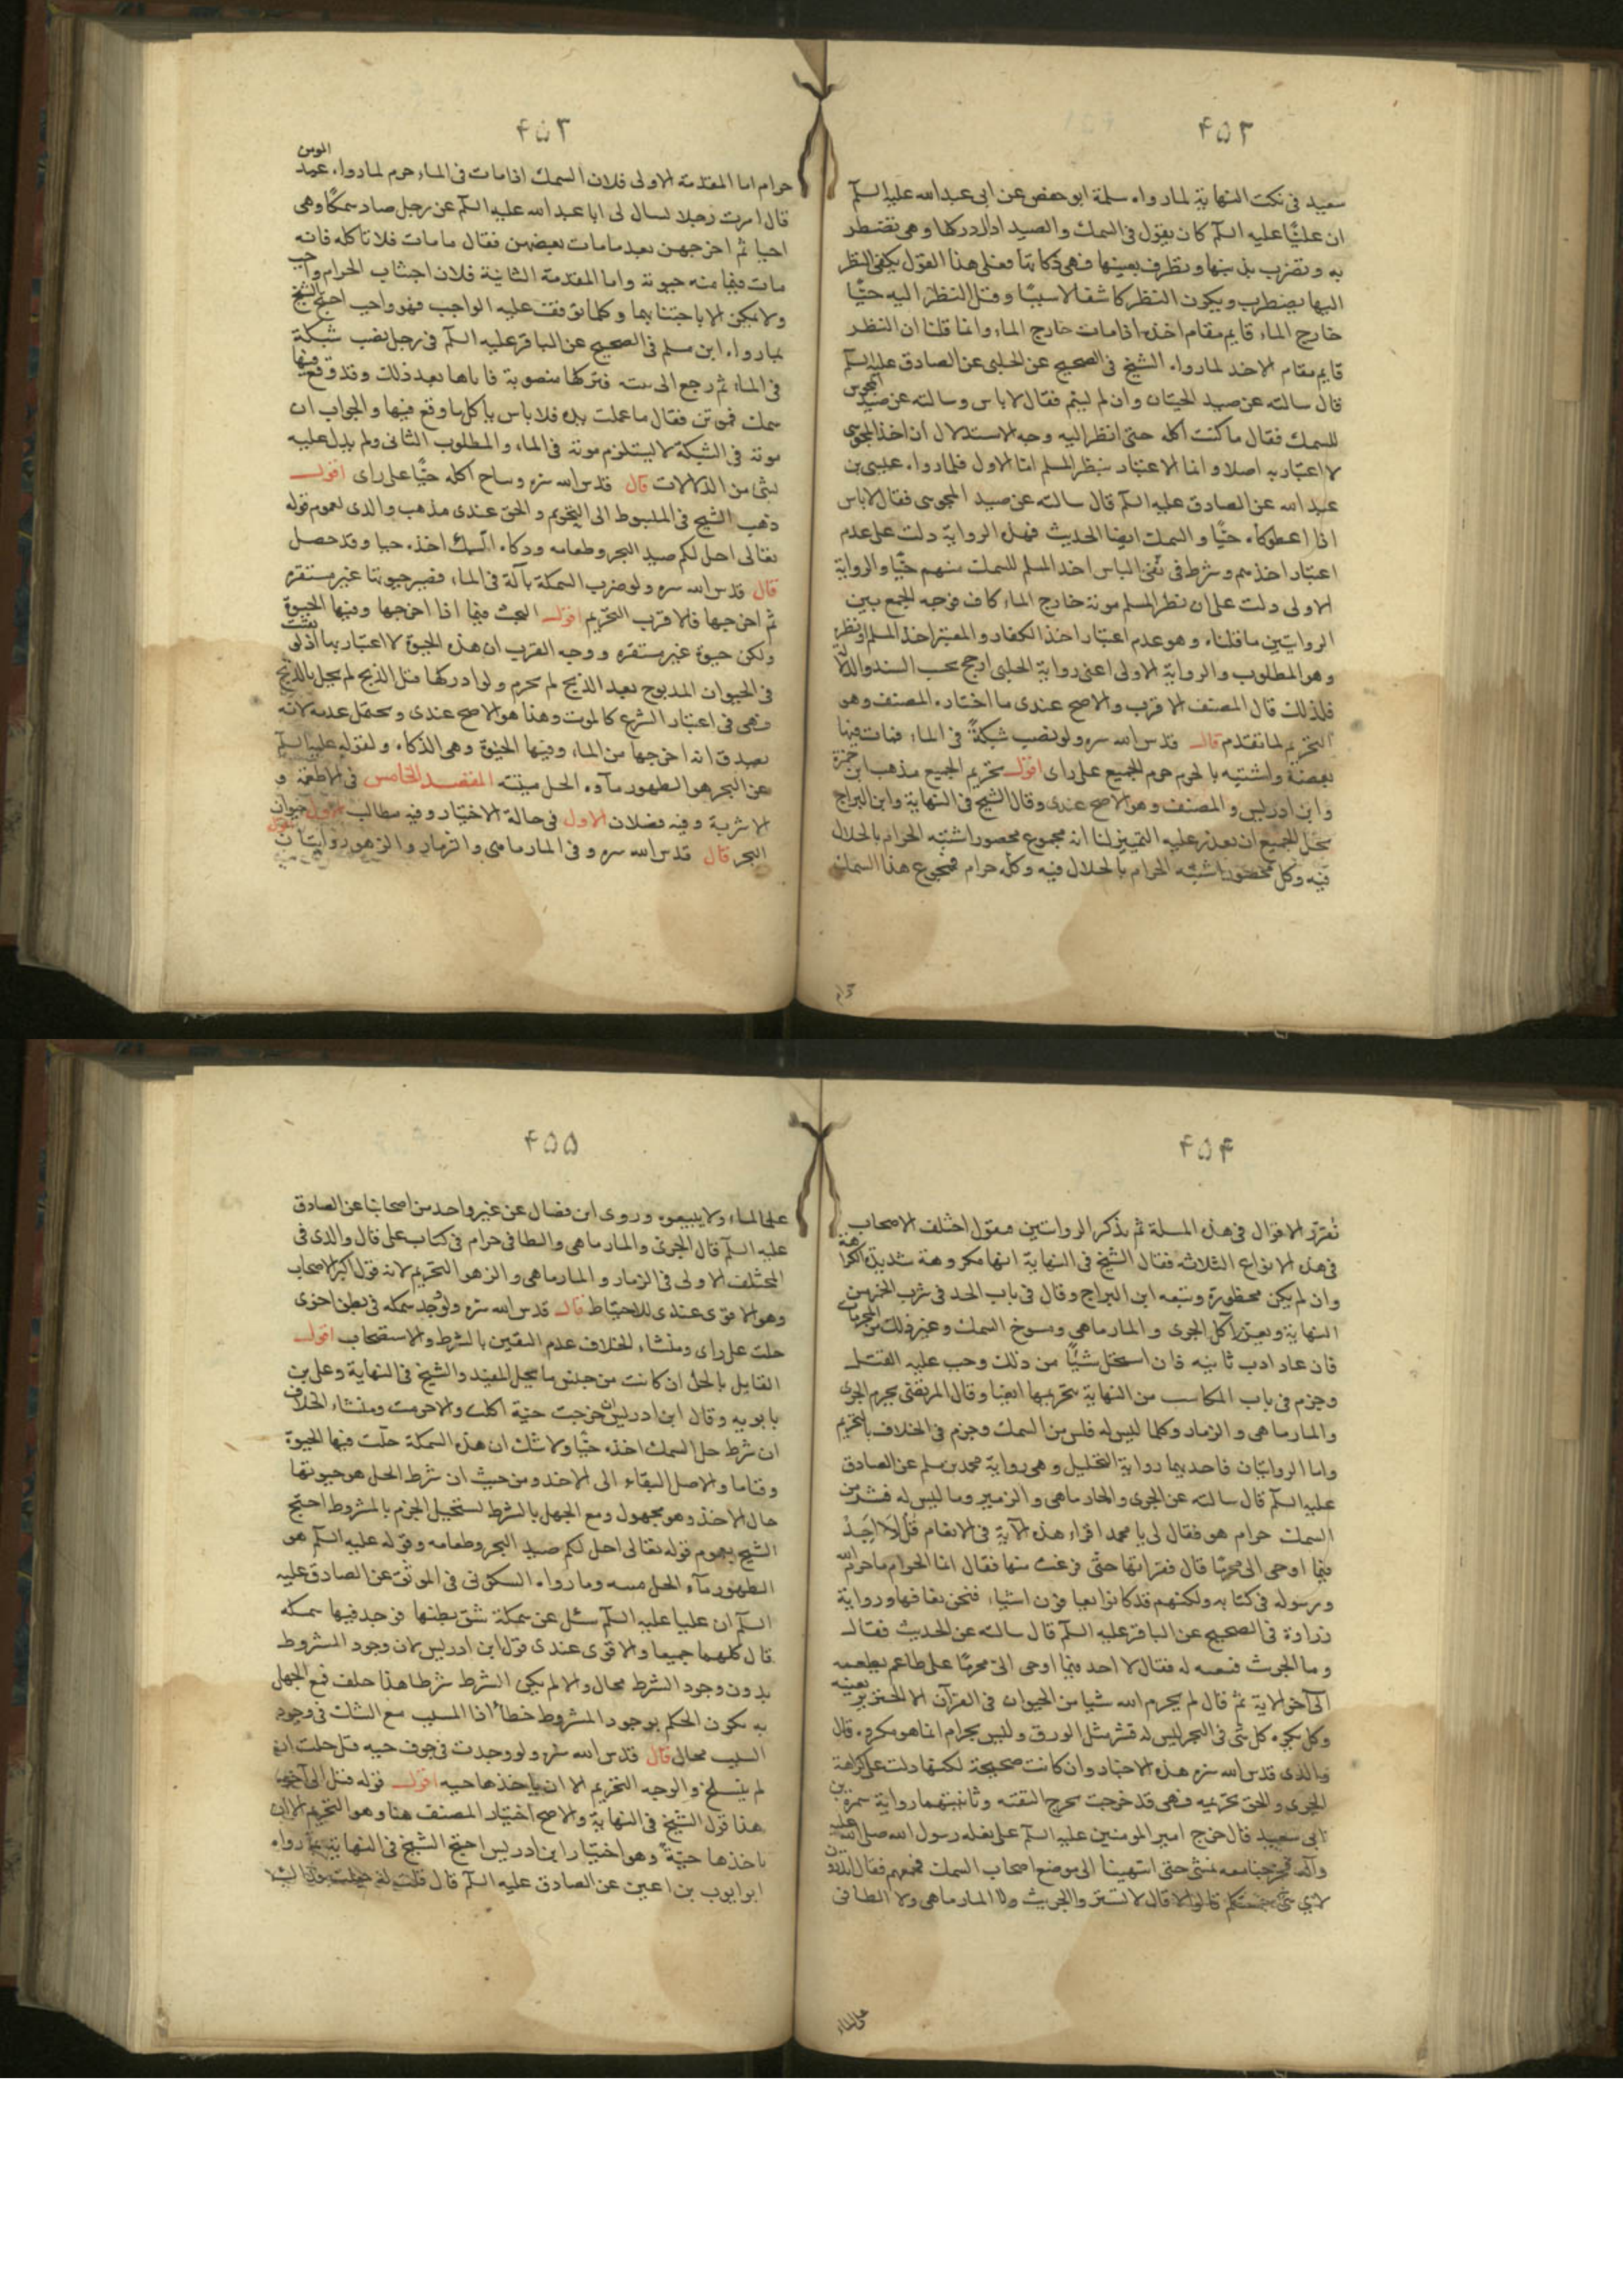 ۴۵۲
سعيد فى نكت النهاية لما رواه سلمة ابو حفص عن ابى عبد الله عليه السلم
ان عليا عليه السلم كان يقول فى السمك والصيد اذا ادركها وهى تضطر
به وتضرب بذنبها وتطرف بعينها فهى ذكاتها فعلى هذا القول يكفى النظر
اليها يضطرب ويكون النظر كاشفا لا سببا وقيل النظر اليه حيا
خارج الماء قايم مقام اخذه اذا مات خارج الماء وانما قلنا ان النظر
قايم مقام الاخذ لما رواه الشيخ فى الصحيح عن الحلبى عن الصادق عليه السلم
قال سالته عن صيد الحيتان وان لم يسم فقال لا باس وسالته عن صيد المجوس
للسمك فقال ما كنت اكله حتى انظر اليه وجه الاستدلال ان اخذ المجوسى
لا اعتبار به اصلا وانما الاعتبار بنظر المسلم اما الاول فلما رواه عيسى بن
عبد الله عن الصادق عليه السلم قال سالته عن صيد المجوسى فقال لا باس
اذا اعطوكاه حيا والسمك ايضا الحديث فهذه الرواية دلت على عدم
اعتبار اخذهم وشرط فى نفى الباس اخذ المسلم للسمك منهم حيا والرواية
الاولى دلت على ان نظر المسلم موته خارج الماء كاف فوجه الجمع بين
الروايتين ما قلناه وهو عدم اعتبار اخذ الكفار والمعتبر اخذ المسلم او نظره
وهو المطلوب والرواية الاولى اعنى رواية الحلبى ارجح بحسب السند والدلالة
فلذلك قال المصنف الاقرب والاصح عندى ما اختاره المصنف وهو
التحريم لما تقدم قال قدس الله سره ولو نصب شبكة فى الماء فمات فيها
بعضه واشتبه بالحى حرم الجميع على راى اقول تحريم الجميع مذهب ابن حمزة
وابن ادريس والمصنف وهو الاصح عندى وقال الشيخ فى النهاية وابن البراج
يحل الجميع ان تعذر عليه التمييز لنا انه مجموع محصور اشتبه الحرام بالحلال
فيه وكل محصور اشتبه الحرام بالحلال فيه وكله حرام فمجموع هذا السمك
حرام
۴۵۳
حرام اما المقدمة الاولى فلان السمك اذا مات فى الماء حرم لما رواه عبد المومن
قال امرت رجلا يسال لى ابا عبد الله عليه السلم عن رجل صاد سمكا وهى
احيا ثم اخرجهن بعد ما مات بعضهن فقال ما مات فلا تاكله فانه
مات فيما منه حيوته واما المقدمة الثانية فلان اجتناب الحرام واجب
ولا يمكن الا باجتنابها وكلما توقفت عليه الواجب فهو واجب احتج الشيخ
بما رواه ابن مسلم فى الصحيح عن الباقر عليه السلم فى رجل نصب شبكة
فى الماء ثم رجع الى بيته فتركها منصوبة فاتاها بعد ذلك وقد وقع فيها
سمك فموتن فقال ما عملت يده فلا باس ياكل ما وقع فيها والجواب ان
موته فى الشبكة لا يستلزم موته فى الماء والمطلوب الثانى ولم يدل عليه
بشى من الدلالات قال قدس الله سره ويباح اكله حيا على راى اقول
ذهب الشيخ فى المبسوط الى التحريم والحق عندى مذهب والدى لعموم قوله
تعالى احل لكم صيد البحر وطعامه وذكاة السمك اخذه حيا وقد حصل
قال قدس الله سره ولو ضرب السمكة بآلة فى الماء فصير حيوتها غير مستقره
ثم اخرجها فالاقرب التحريم اقول البحث فيما اذا اخرجها وفيها الحيوة
ولكن حيوة غير مستقره ووجه القرب ان هذه الحيوة لا اعتبار بها اذ لو بقيت
فى الحيوان المذبوح بعد الذبح لم يحرم ولو ادركها قبل الذبح لم يحل بالذبح
فهى فى اعتبار الشرع كالموت وهذا هو الاصح عندى ويحتمل عدمه لانه
يصدق انه اخرجها من الماء وفيها الحيوة وهى الذكاة ولقوله عليه السلم
عن البحر هو الطهور مآؤه الحل ميتته المقصد الخامس فى الاطعمة و
الاشربة وفيه فصلان الاول فى حالة الاختيار وفيه مطالب الاول حيوان
البحر قال قدس الله سره وفى المارماهى والزمار والزهو روايتان اقول
۴۵۴
نقرر الاقوال فى هذه المسلة ثم نذكر الروايتين فنقول اختلف الاصحاب
فى هذه الانواع الثلاثة فقال الشيخ فى النهاية انها مكروهة شديدة الكراهة
وان لم يكن محظورة وتبعه ابن البراج وقال فى باب الحد فى شرب الخمر من
النهاية ويعزر آكل الجرى والمارماهى ومسوخ السمك وغير ذلك من المحرمات
فان عاد ادب ثانيه فان استحل شيئا من ذلك وجب عليه القتل
وجزم فى باب المكاسب من النهاية بتحريمها ايضا وقال المرتضى يحرم الجرى
والمارماهى والزمار وكلما ليس له فلس من السمك وجزم فى الخلاف بالتحريم
واما الروايتان فاحديهما رواية التحليل وهى رواية محمد بن مسلم عن الصادق
عليه السلم قال سالته عن الجرى والمارماهى والزمير وما ليس له قشر من
السمك حرام هو فقال لى يا محمد اقراء هذه الآية فى الانعام قُل لآ اَجِدُ
فيما اوحى الى محرما قال فقراتها حتى فرغت منها فقال انما الحرام ما حرم الله
ورسوله فى كتابه ولكنهم قد كانوا يعافون اشياء فنحن نعافها ورواية
زرارة فى الصحيح عن الباقر عليه السلم قال سالته عن الجريث فقال
وما الجريث فنعته له فقال لا اجد فيما اوحى الى محرما على طاعم يطعمه
الى آخر الاية ثم قال لم يحرم الله شيا من الحيوان فى القرآن الا الخنزير بعينه
ويكره كل شى فى البحر ليس له قشر مثل الورق وليس بحرام انما هو مكروه قال
والدى قدس الله سره هذه الاخبار وان كانت صحيحة لكنها دلت على كراهة
الجرى والحق تحريمه فهى قد خرجت مخرج التقية وثانيتهما رواية سمرة بن
ابى سعيد قال خرج امير المومنين عليه السلم على بغله رسول الله صلى الله عليه
وآله فخرجنا معه نمشى حتى انتهينا الى موضع اصحاب السمك فجمعهم فقال اتدرون
لاى شى جمعتكم قالوا لا قال لا تشتروا الجريث ولا المارماهى ولا الطافى
على الماء
۴۵۵
على الماء ولا تبيعوه وروى ابن فضال عن غير واحد من اصحابنا عن الصادق
عليه السلم قال الجرى والمارماهى والطافى حرام فى كتاب على قال والدى فى
المختلف الاولى فى الزمار والمارماهى والزهو التحريم لانه قول اكثر الاصحاب
وهو الاقوى عندى للاحتياط قال قدس الله سره ولو وجد سمكه فى بطن اخرى
حلت على راى ومنشاء الخلاف عدم اليقين بالشرط والاستصحاب اقول
القايل بالحل ان كانت من جنس ما يحل المفيد والشيخ فى النهاية وعلى بن
بابويه وقال ابن ادريس ان خرجت حية اكلت والا حرمت ومنشاء الخلاف
ان شرط حل السمك اخذه حيا ولا شك ان هذه السمكة حلت فيها الحيوة
وقتا ما والاصل البقاء الى الاخذ ومن حيث ان شرط الحل هو حيوتها
حال الاخذ وهو مجهول ومع الجهل بالشرط يستحيل الجزم بالمشروط احتج
الشيخ بعموم قوله تعالى احل لكم صيد البحر وطعامه وقوله عليه السلم هو
الطهور مآءه الحل ميته وما رواه السكونى فى الموثق عن الصادق عليه
السلم ان عليا عليه السلم سئل عن سمكة شق بطنها فوجد فيها سمكه
قال كلهما جميعا والاقوى عندى قول ابن ادريس لان وجود المشروط
بدون وجود الشرط محال والا لم يكن الشرط شرطا هذا خلف فمع الجهل
به يكون الحكم بوجود المشروط خطأ اذا المسبب مع الشك فى وجود
السبب محال قال قدس الله سره ولو وجدت فى جوف حيه قيل حلت ان
لم ينسلخ والوجه التحريم الا ان ياخذها حيه اقول قوله قيل الى آخره
هذا قول الشيخ فى النهاية والاصح اختيار المصنف هنا وهو التحريم الا ان
ياخذها حيّة وهو اختيار ابن ادريس احتج الشيخ فى النهاية بما رواه
ابو ايوب بن اعين عن الصادق عليه السلم قال قلت له جعلت فداك